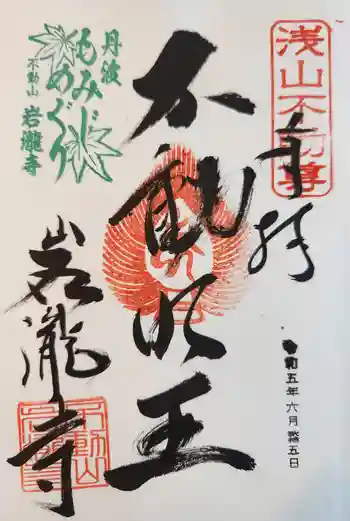 浅山不動尊
奉拝
令和五年六月五日
不動明王
丹波
もみじ
めぐり
不動山
岩瀧寺
岩瀧寺
不動山